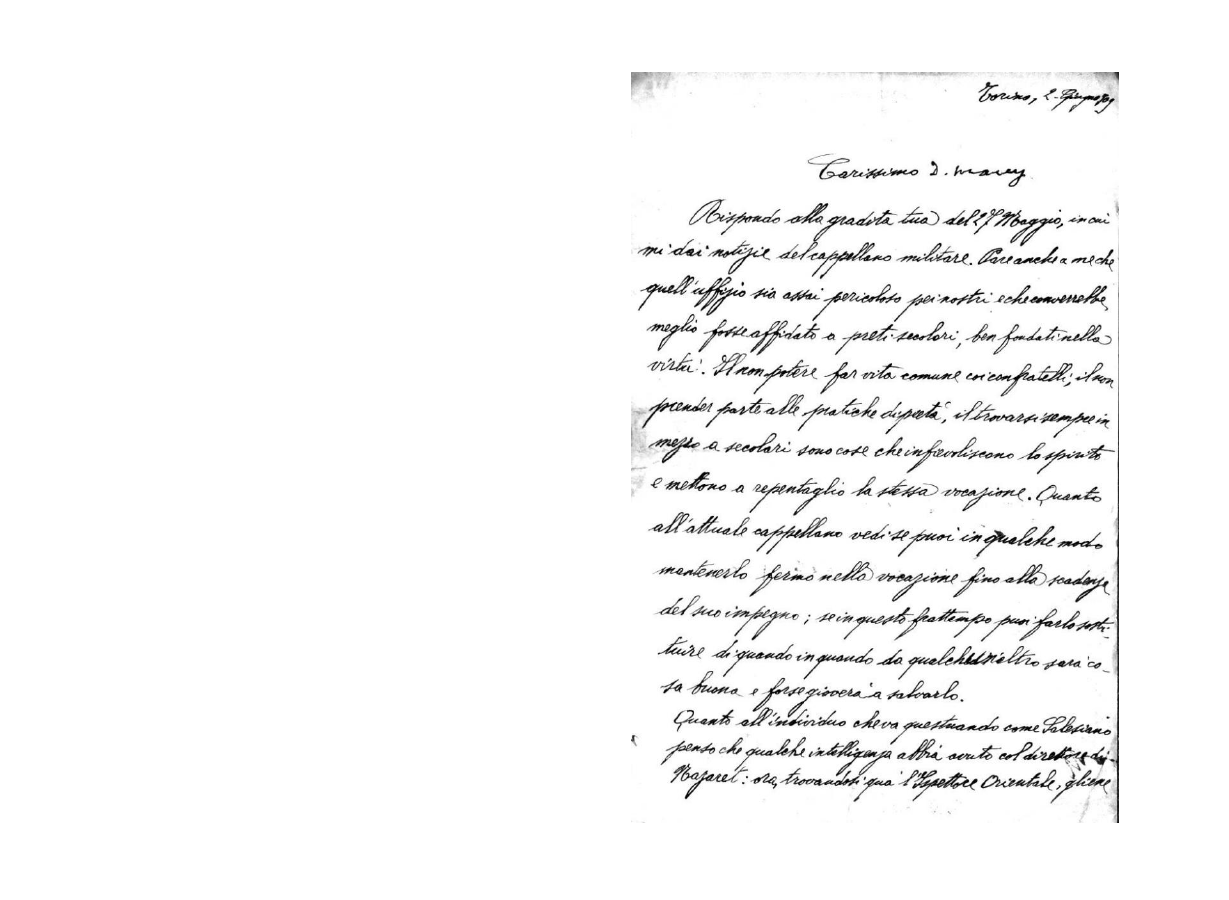 Torino, 2-Giugno 09
Carissimo D.
Rispondo alla gradita tua del 27 Maggio, in cui
mi dai notizie del cappellano militare. Pare anche a me che
quell'uffizio sia assai pericoloso pei nostri e che converrebbe
meglio fosse affidato a preti secolari, ben fondati nella
virtù. Il non potere far vita comune coi confratelli, il non
prender parte alle pratiche di pietà, il trovarsi sempre in
mezzo a secolari sono cose che infievoliscono lo spirito
e mettono a repentaglio la stessa vocazione. Quanto
all'attuale cappellano vedi se puoi in qualche modo
mantenerlo fermo nella vocazione fino alla scadenza
del suo impegno; se in questo frattempo puoi farlo sosti-
tuire di quando in quando da qualched'un'altro sarà co-
sa buona e forse gioverà a salvarlo.
Quanto all'individuo che va questuando come Salesiano
penso che qualche intelligenza abbia avuto col direttore di
Nazaret: ora, trovandosi qua l'Ispettore Orientale, gliene